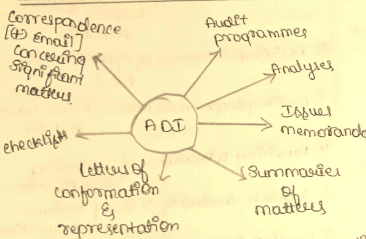 Correspondence
[(+) Email]
Concerning
Significant
matters
Audit
programmes
Analyses
Issues
memoranda
Summaries
of
matters
Letters of
conformation
&
representation
checklists
ADI